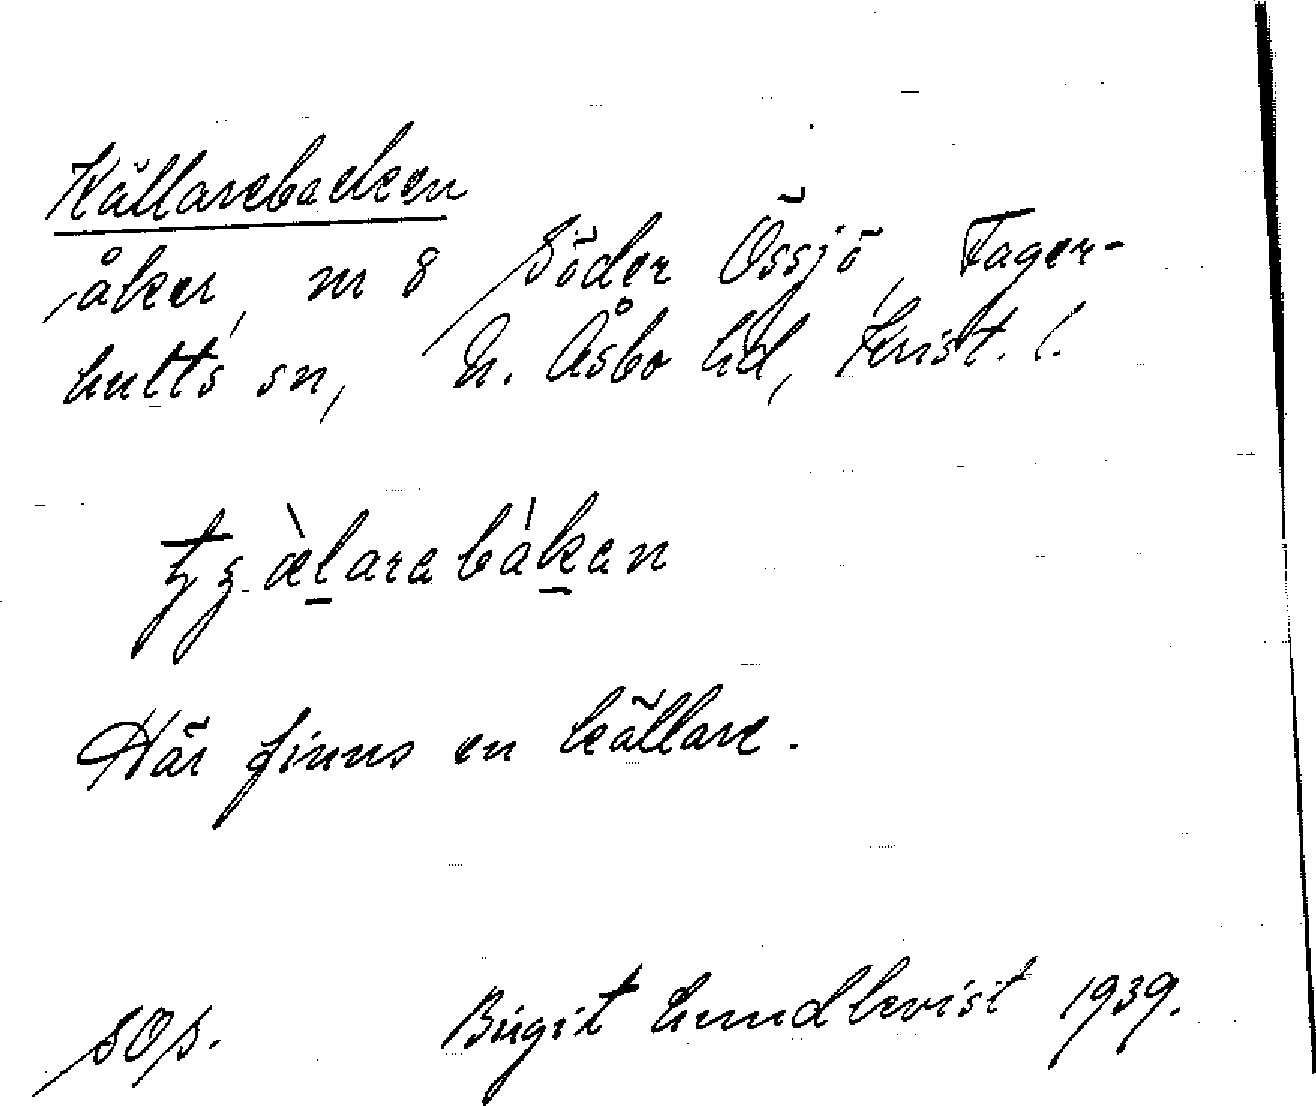 Källarebacken
åker, nr 8 Söder Össjö, Fager-
hults sn, N. Åsbo hd, Krist. l.
Här finns en källare.
SOS. Birgit Lundkvist 1939.